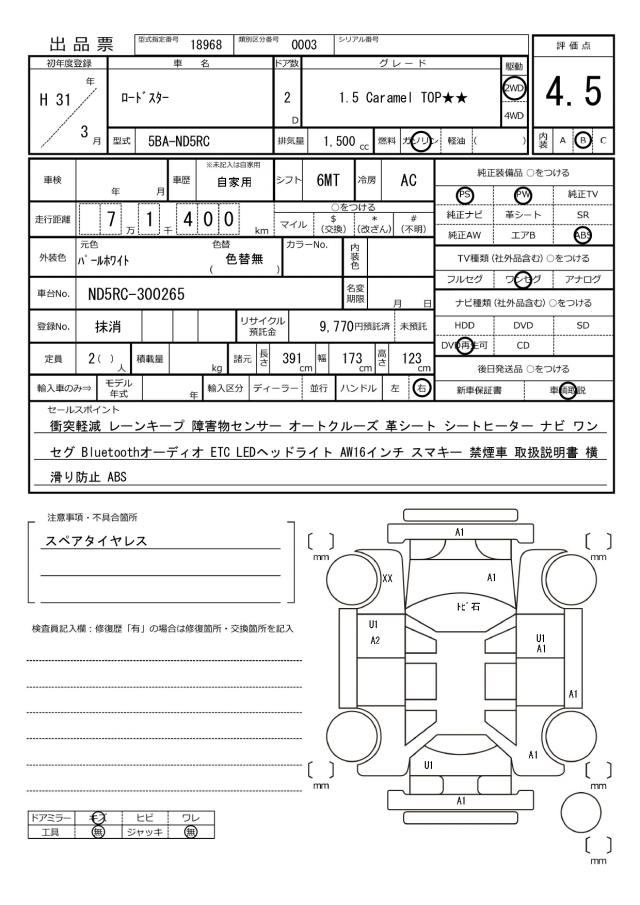 出品票 型式指定番号 18968 類別区分番号 0003 シリアル番号
評価点
4.5
内装 A B C
初年度登録 車名 ドア数 グレード 駆動
H 31 年 3 月
ロードスター 2 D 1.5 Caramel TOP★★ 2WD
4WD
型式 5BA-ND5RC 排気量 1,500 cc 燃料 ガソリン 軽油 ( )
車検 年 月 車歴 ※未記入は自家用 自家用 シフト 6MT 冷房 AC
走行距離 7 万 1 千 4 0 0 km
○をつける
マイル $(交換) *(改ざん) #(不明)
外装色 元色 パールホワイト 色替 ( 色替無 ) カラーNo. 内装色
車台No. ND5RC-300265 名変期限 月 日
登録No. 抹消 リサイクル預託金 9,770円預託済 未預託
定員 2( )人 積載量 kg 諸元 長さ 391 cm 幅 173 cm 高さ 123 cm
輸入車のみ⇒ モデル年式 年 輸入区分 ディーラー 並行 ハンドル 左 右
純正装備品 ○をつける
PS PW 純正TV
純正ナビ 革シート SR
純正AW エアB ABS
TV種類 (社外品含む) ○をつける
フルセグ ワンセグ アナログ
ナビ種類 (社外品含む) ○をつける
HDD DVD SD
DVD再生可 CD
後日発送品 ○をつける
新車保証書 車輌取説
セールスポイント
衝突軽減 レーンキープ 障害物センサー オートクルーズ 革シート シートヒーター ナビ ワン
セグ Bluetoothオーディオ ETC LEDヘッドライト AW16インチ スマキー 禁煙車 取扱説明書 横
滑り防止 ABS
注意事項・不具合箇所
スペアタイヤレス
検査員記入欄：修復歴「有」の場合は修復箇所・交換箇所を記入
ドアミラー キズ ヒビ ワレ
工具 無 ジャッキ 無
A1
〔 〕mm 〔 〕mm
XX A1
トビ石
U1
A2
U1
A1
A1
A1
U1
〔 〕mm 〔 〕mm
A1
〔 〕mm